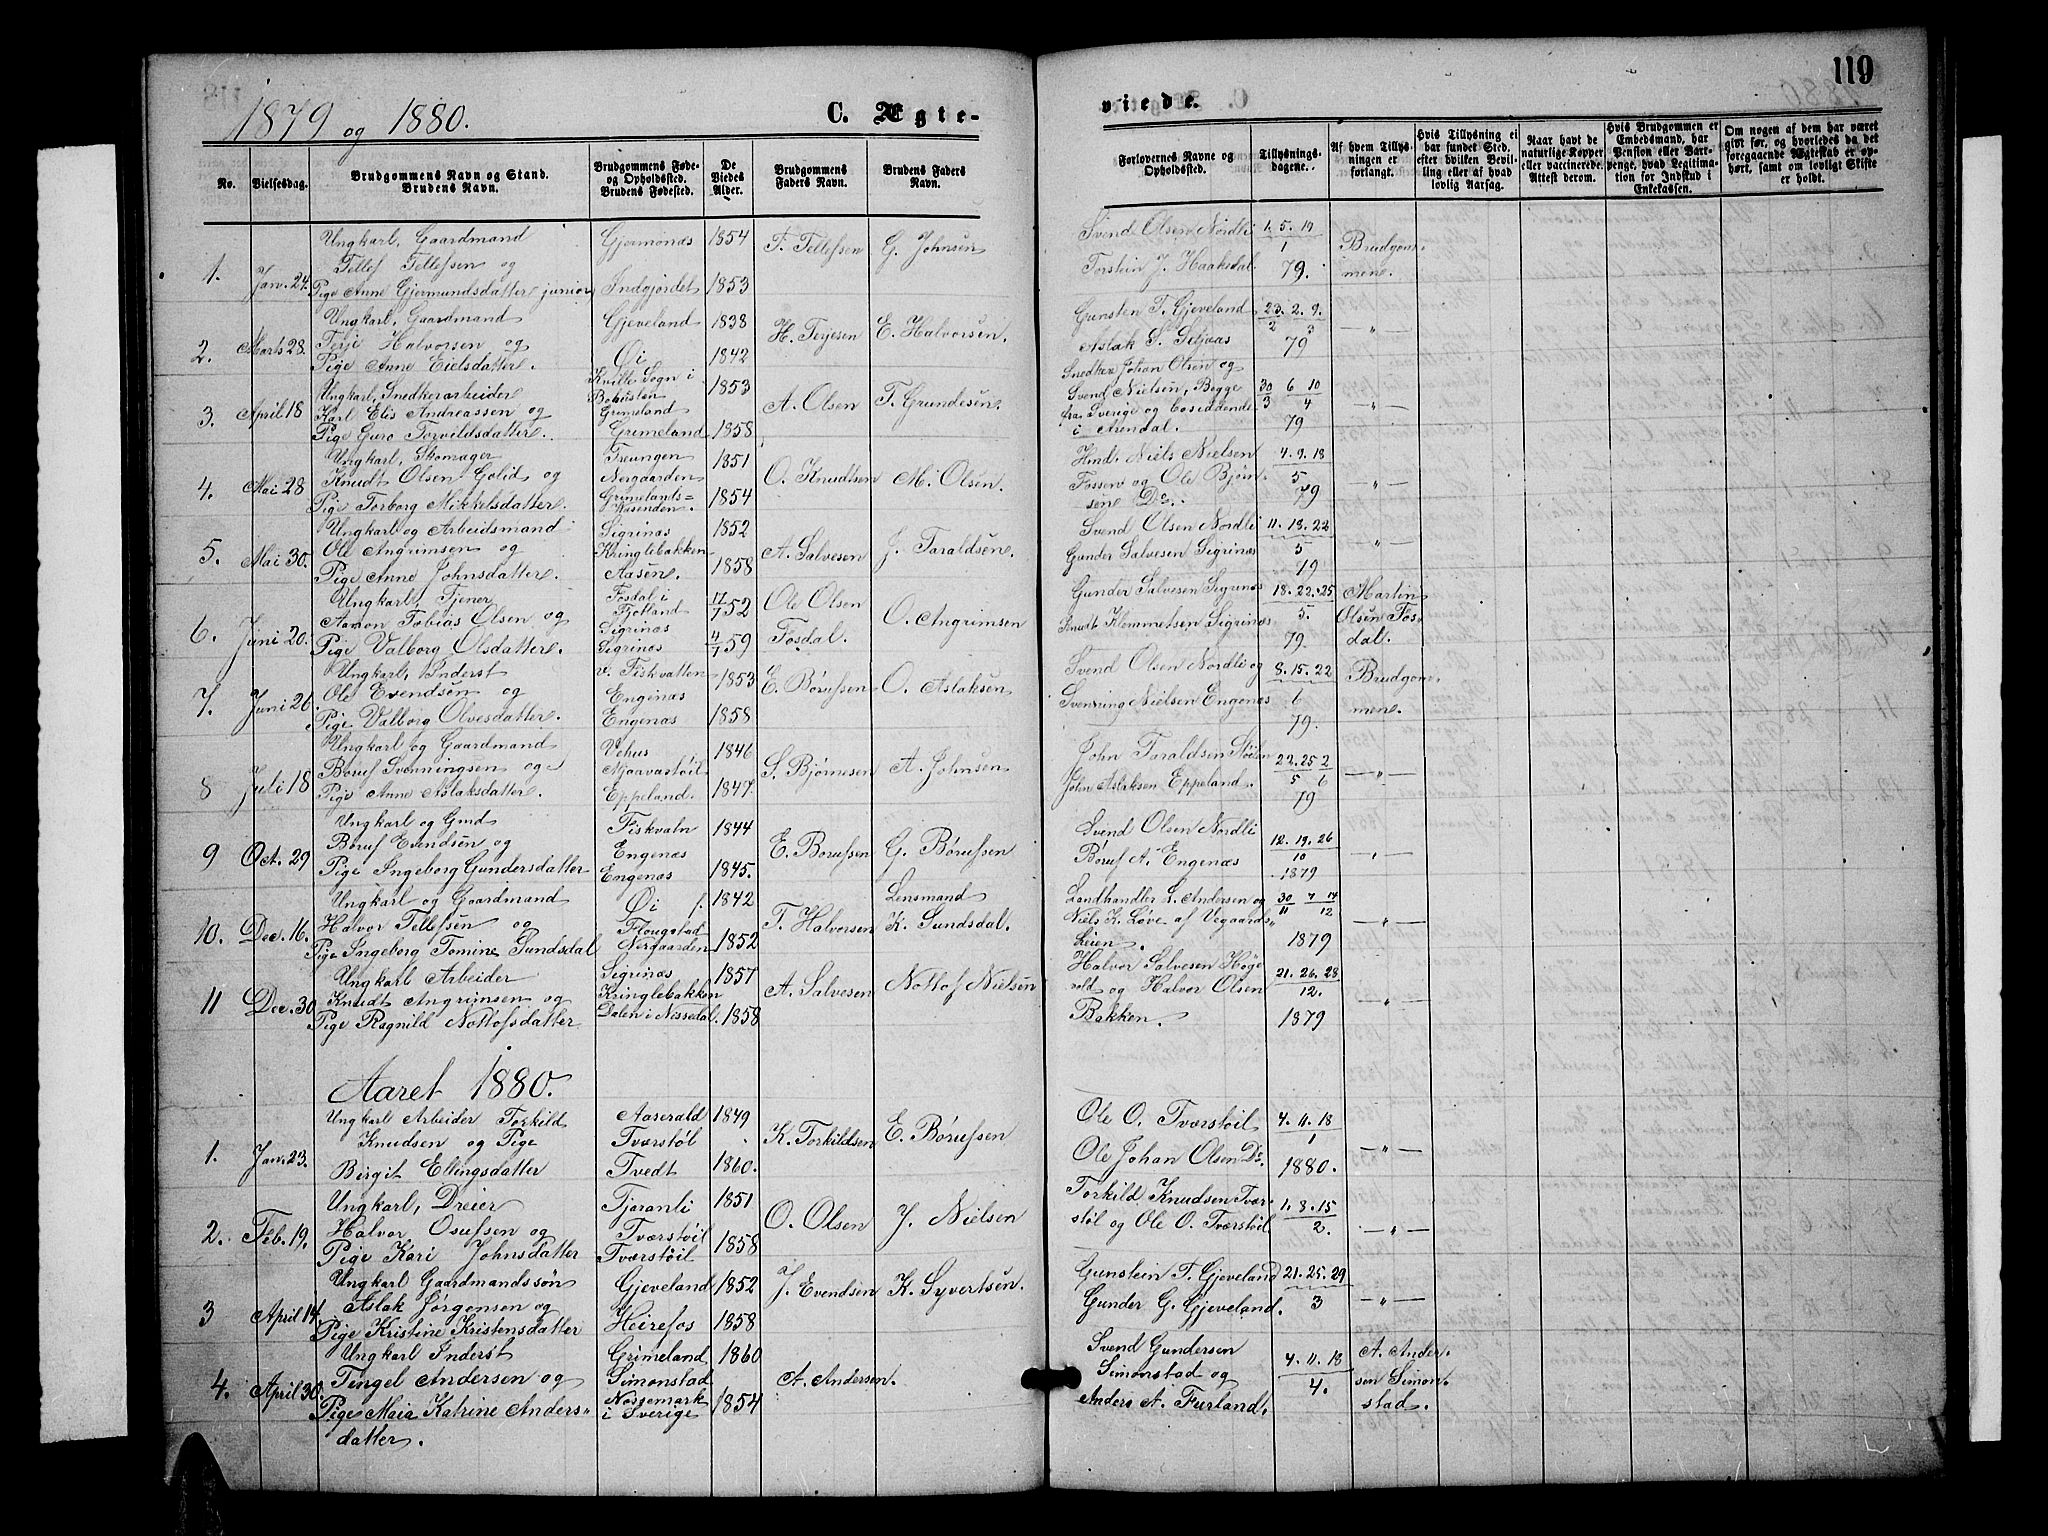 119
1879 og 1880.
C. Ægte-
viede.
No.
Vielsesdag.
Brudgommens Navn og Stand.
Brudens Navn.
Brudgommens Føde-
og Opholdssted.
Brudens Fødested.
De
Viedes
Alder.
Brudgommens
Faders Navn.
Brudens Faders
Navn.
Forlovernes Navne og
Opholdssted.
Tillysnings-
dagene.
Af hvem Tillys-
ningen er
forlangt.
Hvis Tillysning ei
har fundet Sted,
efter hvilken Bevil-
ling eller af hvad
lovlig Aarsag.
Naar havt de
naturlige Kopper
eller vaccinerede.
Attest derom.
Hvis Brudgommen er
Embedsmand, har
Pension eller Vart-
penge, hvad Legitima-
tion for Indskud i
Enkekassen.
Om nogen af dem har været
givt før, og hvorledes da det
foregaaende Ægteskab er op-
hørt, samt om lovligt Skifte
er holdt.
1. Jan. 24.
Ungkarl, Gaardmand
Tellef Tellefsen og
Pige Anne Gjermundsdatter junior
Gjermonæs
Indgjordet
1854
1853
T. Tellefsen
G. Johnsen
Svend Olsen Nordli
Torstein J. Haaksdal
1. 5. 19
1
79.
Brudgom-
mene.
2. Marts 28.
Ungkarl, Gaardmand
Terje Halvorsen og
Pige Anne Eielsdatter.
Gjeveland
Øi
1838
1842
H. Terjesen
E. Halvorsen.
Gunsten T. Gjeveland
Aslak S. Seljaas
23. 2. 9.
2 3
79
— " —
3. April 18
Ungkarl, Snedkerarbeider
Karl Elis Andreassen og
Pige Guro Torvildsdatter.
Kville Sogn i
Bohuslen
Grimeland
Grimeland
1853
1858
A. Olsen
T. Grundesen.
Snedker Johan Olsen og
Svend Nielsen, Begge
fra Sverige og bosiddende
i Arendal.
30 6 10
3 4
79
— " —
4. Mai 28
Ungkarl, Skomager
Knudt Olsen Golid og
Pige Torborg Mikkelsdatter.
Treungen
Nergaarden
Grimelands=
Kisenden.
1851
1854
O. Knudtsen
M. Olsen.
Hmd. Niels Nielsen
Fossen og Ole Bjørn-
sen Do.
4. 9. 18
5
79
— " —
5. Mai 30.
Ungkarl og Arbeidsmand
Ole Angrimsen og
Pige Anne Johnsdatter.
Sigrinæs
Kringlebakken
Aasen.
1852
1858
A. Salvesen
J. Taraldsen.
Svend Olsen Nordli
Gunder Salvesen Sigrinæs
11. 18. 22
5
79
— " —
6. Juni 20.
Ungkarl, Tjener
Aaron Tobias Olsen og
Pige Valborg Olsdatter.
Fosdal i
Fjotland
Sigrinæs
Sigrinæs
17/7 52
4/1 59
Ole Olsen
Fosdal.
O. Angrimsen
Gunder Salvesen Sigrinæs
Knudt Klemmetsen Sigrinæs
18. 22. 25
5.
79.
Martin
Olsen Fos-
dal.
7. Juni 26.
Ungkarl, Inderst
Ole Evendsen og
Pige Valborg Olvesdatter.
v. Fiskvatten
Engenæs
Engenæs
1853
1858
E. Børufsen
O. Aslaksen
Svend Olsen Nordli og
Svenning Nielsen Engenæs
8. 15. 22
6
79.
Brudgom-
mene.
8 Juli 18
Ungkarl og Gaardmand
Boruf Svenningsen og
Pige Anne Aslaksdatter.
Vehus
Mjaavastøil
Eppeland.
1846
1847
S. Bjørnesen
A. Johnsen
John Taraldsen Støilen
John Aslaksen Eppeland.
22. 25 2
5 6
79
— " —
9 Oct. 29
Ungkarl og Gmd
Boruf Evendsen og
Pige Ingeborg Gundersdatter
Fiskvatn
Engenæs
Engenæs
1844
1845.
E. Borufsen
G. Børufsen
Svend Olsen Nordli
Børuf A. Engenæs
12. 19. 26
10
1879
— " —
10. Dec. 16.
Ungkarl og Gaardmand
Halvor Tellefsen og
Pige Ingeborg Tomine Sundsdal
Øi
Flougstad
Nergaarden
1842
1852
T. Halvorsen
Lensmand
K. Sundsdal.
Landhandler L. Andersen og
Niels K. Løve af Vegaards"
heien.
30 7 14
11 12
1879
— " —
11 Dec. 30
Ungkarl Arbeider
Knudt Angrimsen og
Pige Ragnild Nottofsdatter
Sigrinæs
Kringlebakken
Dalen i Nissedal.
1857
1858
A. Salvesen
Nottof Nielsen
Halvor Salvesen Høge
vold og Halvor Olsen
Bakken.
21. 26. 28
12.
1879
— " —
Aaret 1880.
1. Jan. 23.
Ungkarl Arbeider Torkild
Knudsen og Pige
Birgit Ellingsdatter
Aaserald
Tværstøl
Tvedt
1849
1860.
K. Torkildsen
E. Børufsen
Ole O. Tværstøil
Ole Johan Olsen Do.
4. 11. 18
1
1880.
— " —
2. Feb. 19.
Ungkarl, Dreier
Halvor Osufsen og
Pige Kari Johnsdatter
Tjaranli
Tværstøil
Tværstøil
1851
1858
O. Olsen
J. Nielsen
Torkild Knudsen Tvær-
støl og Ole O. Tværstøil
1. 8. 15
2.
— " —
3 April 14.
Ungkarl Gaardmandssøn
Aslak Jørgensen og
Pige Kristine Kristensdatter
Gjeveland
Heirefos
1852
1858
J. Evendsen
K. Syvertsen.
Gunstein T. Gjeveland
Gunder G. Gjeveland.
21. 25. 29
3
— " —
4. April 30.
Ungkarl Inderst
Tingel Andersen og
Pige Maia Katrine Anders=
datter.
Grimeland
Simonstad
Nossemark
i Sverige
1860
1854
A. Andersen.
Svend Gundersen
Simonstad og
Anders A. Furland.
4. 11. 18
4.
A. Ander-
sen Simon-
stad.